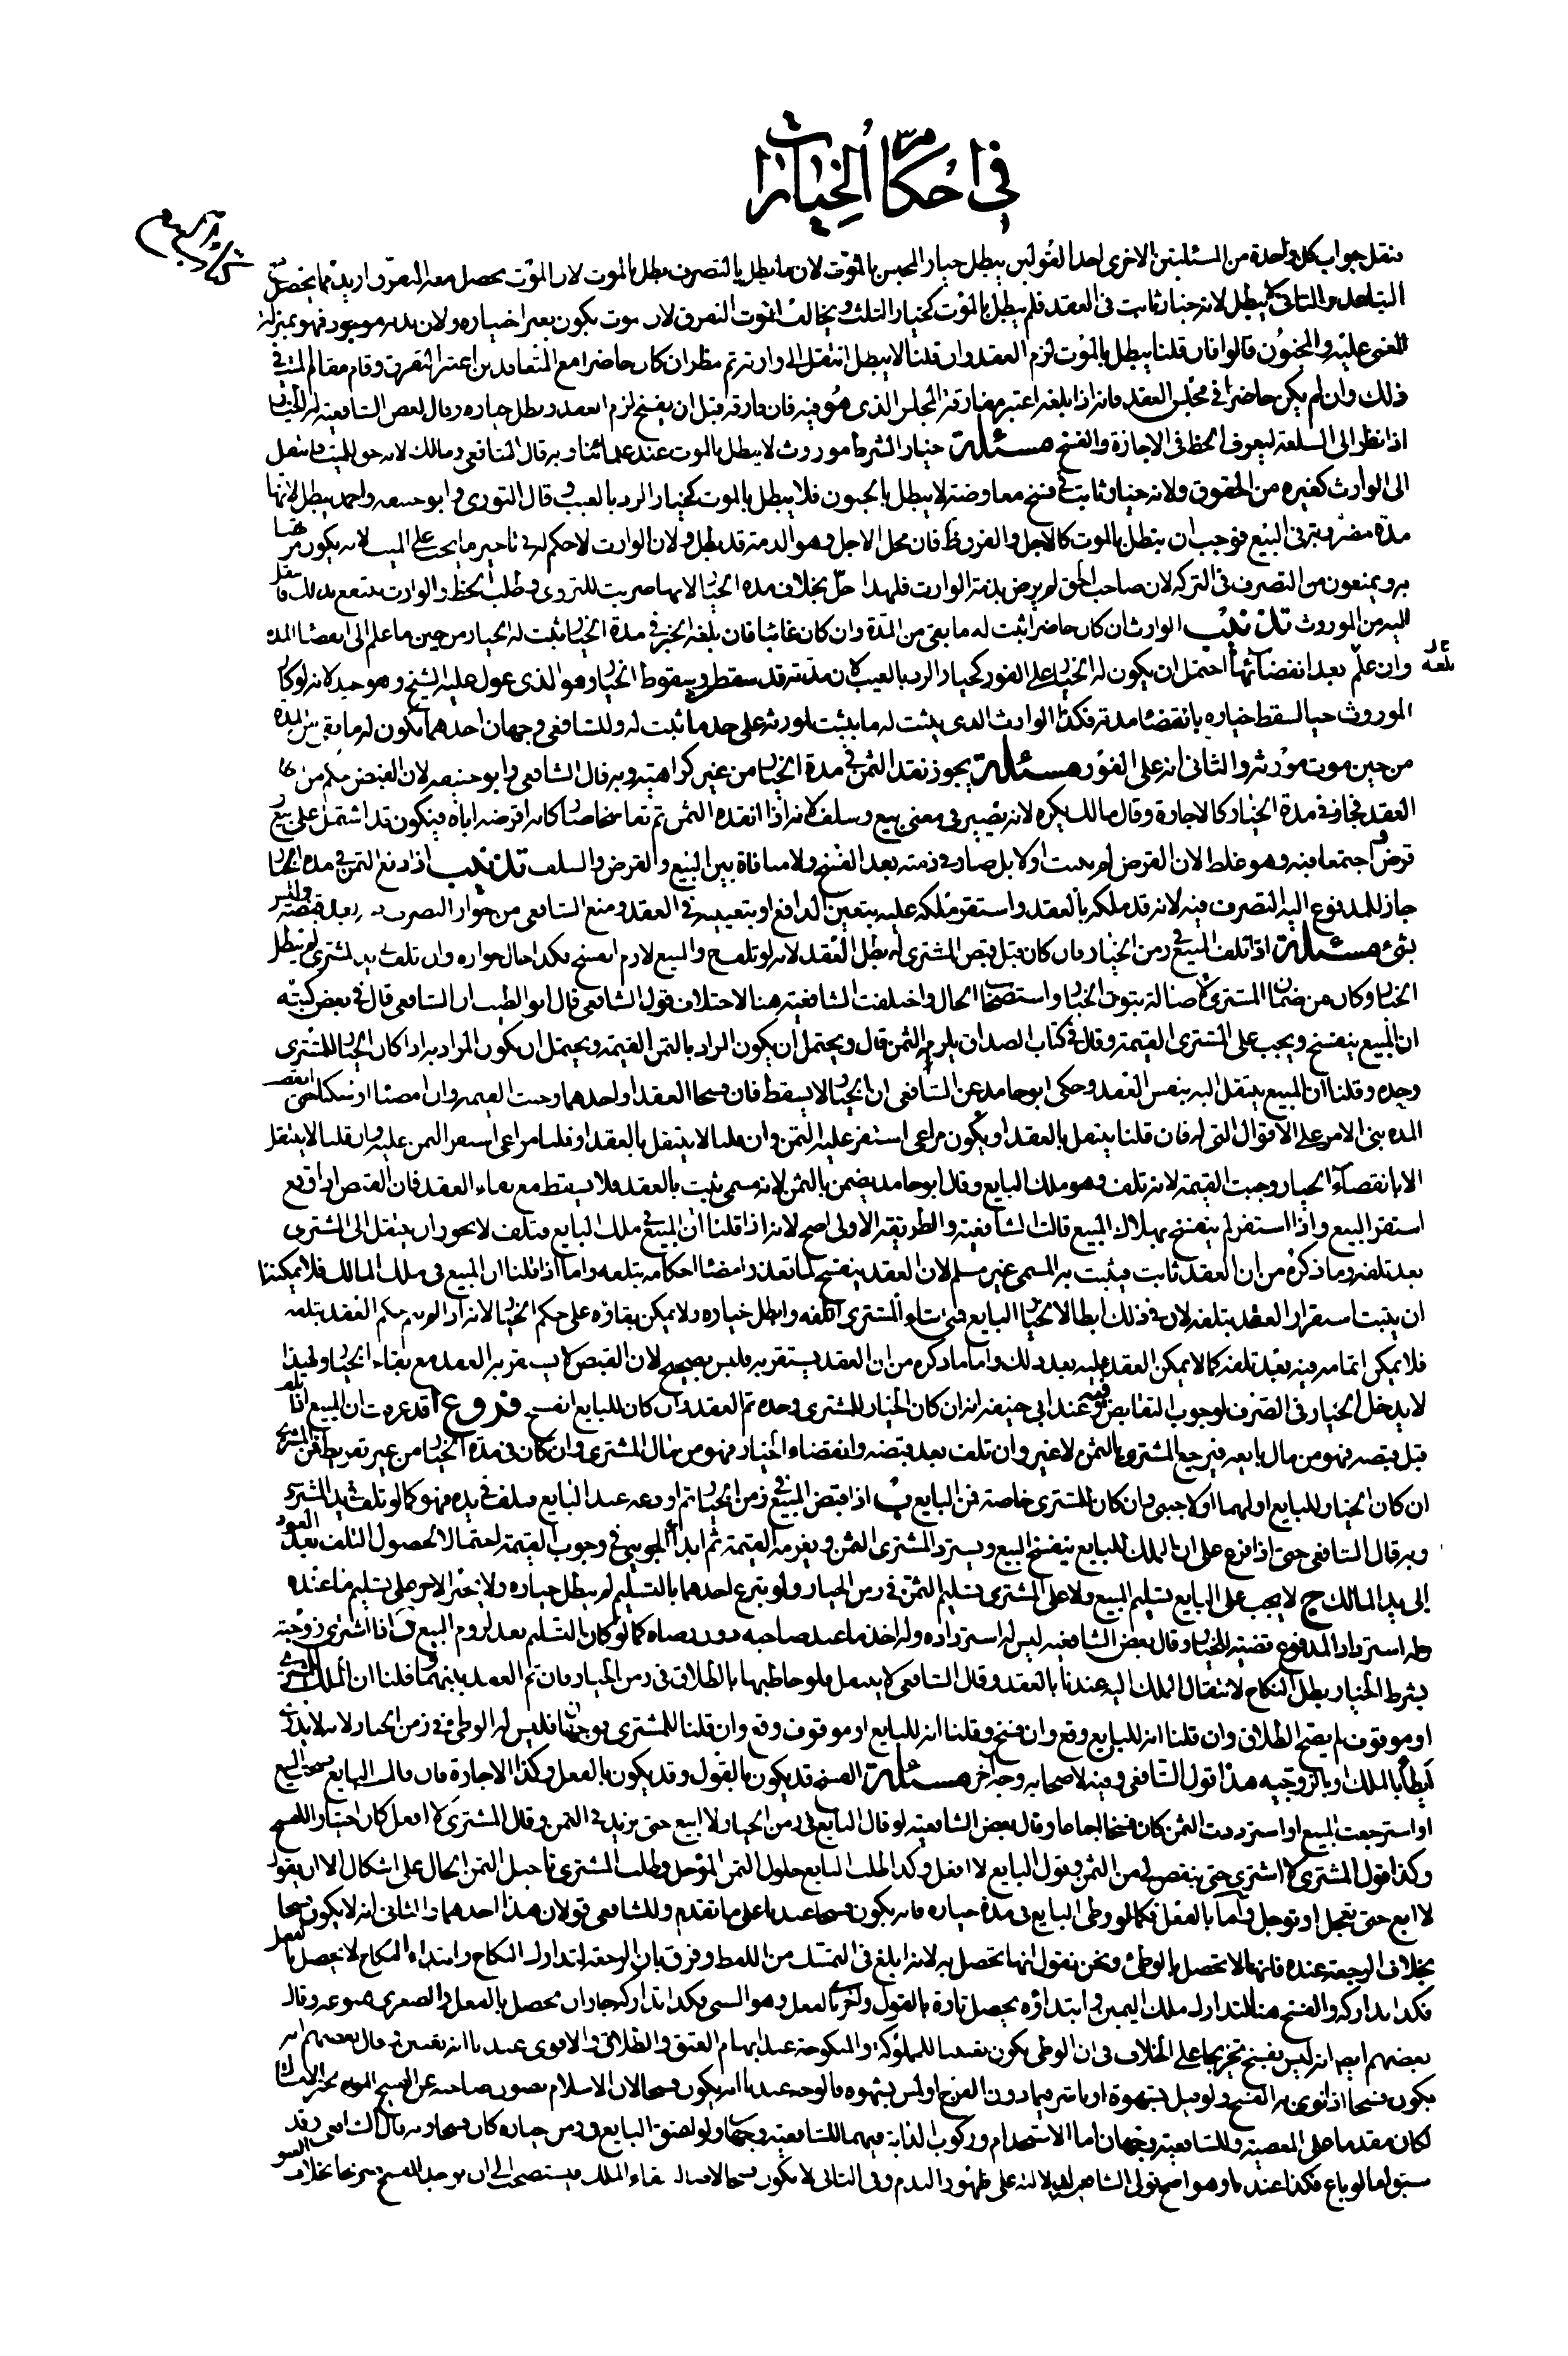 في احكام الخيارات
فنقل جواب كل واحدة من المسئلتين الاخرى احد القولين يبطل خيار المجلس بالموت لان ما يبطل بالتصرف يبطل بالموت لان الموت يحصل معه التفرق ازيد مما يحصل
التباعد والثاني لا يبطل لانه خيار ثابت في العقد فلم يبطل بالموت كخيار الثلث ويخالف الموت التفرق لان موت يكون بغير اختياره ولان بدنه موجود فهو بمنزلة
المغمى عليه والمجنون قالوا فان قلنا يبطل بالموت لزم العقد وان قلنا لا يبطل انتقل الى وارثه ثم ينظر ان كان حاضرا مع المتعاقدين اعتبر التفرق وقام مقام الميت في
ذلك وان لم يكن حاضرا في مجلس العقد فانه اذا بلغه اعتبر مفارقة المجلس الذي هو فيه فان فارقه قبل ان يفسخ لزم العقد وبطل خياره وقال بعض الشافعية له الخيار
اذا نظر الى السلعة ليعرف الحظ في الاجازة والفسخ مسئلة خيار الشرط موروث لا يبطل بالموت عند علمائنا وبه قال الشافعي ومالك لانه حق للميت فانتقل
الى الوارث كغيره من الحقوق ولانه خيار ثابت في فسخ معاوضة لا يبطل بالجنون فلا يبطل بالموت كخيار الرد بالعيب وقال الثوري وابو حنيفه واحمد يبطل لانها
مدة مضروبة في البيع فوجب ان يبطل بالموت كالاجل والفرق ظ فان محل الاجل وهو الذمة قد بطل ولان الوارث لا حكم له في تاخير ما يجب على الميت لانه يكون مرتهنا
به ويمنعون من التصرف في التركه لان صاحب الحق لم يرض بذمة الوارث فلهذا حل بخلاف مدة الخيار لانها ضربت للتروي وطلب الحظ والوارث ينتفع بذلك فانتقل
اليه من الموروث تذنيب الوارث ان كان حاضرا ثبت له ما بقي من المدة وان كان غائبا فان بلغه الخبر في مدة الخيار ثبت له الخيار من حين ما علم الى انقضاء المدة
وان علم بعد انقضائها احتمل ان يكون له الخيار على الفور كخيار الرد بالعيب لان مدته قد سقط وسقوط الخيار وهو الذي عول عليه الشيخ وهو جيد لانه لو كان
الموروث حيا لسقط خياره بانقضاء مدته فكذا الوارث الذي يثبت له ما يثبت لمورثه على حد ما ثبت له وللشافعي وجهان احدهما يكون له ما بقي من المدة
من حين موت مورثه والثاني انه على الفور مسئلة يجوز نقد الثمن في مدة الخيار من غير كراهية وبه قال الشافعي وابو حنيفه لان القبض حكم من احكام
العقد فجاز في مدة الخيار كالاجارة وقال مالك يكره لانه يصير في معنى بيع وسلف لانه اذا انقده الثمن ثم تفاسخا صار كانه اقرضه اياه فيكون قد اشتمل على بيع و
قرض اجتمعا فيه وهو غلط لان القرض لم يثبت اولا بل صار في ذمته بعد الفسخ ولا منافاة بين البيع والقرض والسلف تذنيب اذا دفع الثمن في مدة الخيار
جاز للمدفوع اليه التصرف فيه لانه قد ملكه بالعقد واستقر ملكه عليه بتعيين الدافع او بتعيينه في العقد ومنع الشافعي من جواز التصرف فيه بعد قبضه وليس
بشئ مسئلة اذا تلف المبيع في زمن الخيار فان كان قبل قبض المشتري له بطل العقد لانه لو تلف والبيع لازم انفسخ فكذا حال جوازه وان تلف بيد المشتري لم يبطل
الخيار وكان من ضمان المشتري لاصالة ثبوت الخيار واستصحابا للحال واختلفت الشافعية هنا لاختلاف قول الشافعي قال ابو الطيب ان الشافعي قال في بعض كتبه
ان المبيع ينفسخ ويجب على المشتري القيمة وقال في كتاب الصداق يلزمه الثمن قال ويحتمل ان يكون المراد بالثمن القيمة ويحتمل ان يكون المراد به اذا كان الخيار للمشتري
وحده وقلنا ان المبيع ينتقل اليه بنفس العقد وحكى ابو حامد عن الشافعي ان الخيار لا يسقط فان فسخا العقد او احدهما وجبت القيمة وان امضيا او سكتا حتى انقضت
المدة بني الامر على الاقوال التي له فان قلنا ينتقل بالعقد او يكون مراعى استقر عليه الثمن وان قلنا لا ينتقل بالعقد او قلنا مراعى استقر الثمن عليه وان قلنا لا ينتقل
الا بانقضاء الخيار وجبت القيمة لانه تلف وهو ملك البايع وقال ابو حامد يضمن بالثمن لانه مسمى ثبت بالعقد فلا يسقط مع بقاء العقد فان القبض اذا وقع
استقر البيع واذا استقر لم ينفسخ بهلاك المبيع قالت الشافعية والطريقة الاولى اصح لانه اذا قلنا ان المبيع في ملك البايع فتلف لا يجوز ان ينتقل الى المشتري
بعد تلفه وما ذكره من ان العقد ثابت فيثبت به المسمى غير مسلم لان العقد ينفسخ لما تعذر امضاء احكامه بتلفه واما اذا قلنا ان المبيع في ملك المالك فلا يمكننا
ان يثبت استقرار العقد بتلفه لان في ذلك ابطالا لخيار البايع فمتى شاء المشتري اتلفه وابطل خياره ولا يمكن بقاؤه على حكم الخيار لانه اذا لم يتم حكم العقد بتلفه
فلا يمكن اتمامه فيه بعد تلفه كما لا يمكن العقد عليه بعد ذلك واما ما ذكره من ان العقد يستقر به فليس بصحيح لان القبض لا يستقر به العقد مع بقاء الخيار ولهذا
لا يدخل الخيار في الصرف لوجوب التقابض فيه وعند ابي حنيفه انه ان كان الخيار للمشتري وحده تم العقد وان كان للبايع انفسخ فروع ا قد عرفت ان المبيع اذا تلف
قبل قبضه فهو من مال بايعه فيرجع المشتري بالثمن لا غير وان تلف بعد قبضه وانقضاء الخيار فهو من مال المشتري وان كان في مدة الخيار من غير تفريط فمن المشتري
ان كان الخيار للبايع او لهما او لاجنبي وان كان للمشتري خاصة فمن البايع ب اذا قبض المبيع في زمن الخيار ثم اودعه عند البايع فتلف في يده فهو كما لو تلف في يد المشتري
وبه قال الشافعي حتى اذا فرع على ان الملك للبايع ينفسخ البيع ويسترد المشتري الثمن ويغرم القيمة ثم ابدا الجويني في وجوب القيمة احتمالا لحصول التلف بعد العود
الى يد المالك ج لا يجب على البايع تسليم المبيع ولا على المشتري تسليم الثمن في زمن الخيار ولو تبرع احدهما بالتسليم لم يبطل خياره ولا يجبر الاخر على تسليم ما عنده
وله استرداد المدفوع قضية للخيار وقال بعض الشافعية ليس له استرداده وله اخذ ما عند صاحبه دون رضاه كما لو كان التسليم بعد لزوم البيع د اذا اشترى زوجته
بشرط الخيار بطل النكاح لانتقال الملك اليه عندنا بالعقد وقال الشافعي لا يبطل فلو خاطبها بالطلاق في زمن الخيار فان تم العقد بينهما وقلنا ان الملك للمشتري
او موقوف لم يصح الطلاق وان قلنا انه للبايع وقع وان فسخ وقلنا انه للبايع او موقوف وقع وان قلنا للمشتري فوجهان وليس له الوطي في زمن الخيار لانه لا يدري
ايطأ بالملك او بالزوجيه هذا قول الشافعي وفيه لاصحابه وجه آخر مسئلة الفسخ قد يكون بالقول وقد يكون بالفعل وكذا الاجازة فان قال البايع فسخت البيع
او استرجعت المبيع او استرددت الثمن كان فسخا اجماعا وقال بعض الشافعية لو قال البايع في زمن الخيار لا ابيع حتى يزيد في الثمن وقال المشتري لا افعل كان اختيارا للفسخ
وكذا قول المشتري لا اشتري حتى ينقص لي من الثمن وقول البايع لا افعل وكذا طلب البايع حلول الثمن المؤجل وطلب المشتري تاجيل الثمن الحال على اشكال الا ان يقول
لا ابيع حتى تعجل او توجل واما بالفعل فكما لو وطئ البايع في مدة خياره فانه يكون فسخا عندنا على ما تقدم وللشافعي قولان هذا احدهما والثاني انه لا يكون فسخا
بخلاف الرجعة عنده فانها لا تحصل بالوطئ ونحن نقول انها تحصل به لانه ابلغ في التمسك من اللفظ وفرق بان الرجعة لتدارك النكاح وابتداء النكاح لا يحصل بالفعل
فكذا تداركه والفسخ هنا لتدارك ملك اليمين وابتداؤه يحصل تارة بالقول واخرى بالفعل وهو السبي فكذا تداركه جاز ان يحصل بالفعل والصغرى ممنوعة وقال
بعضهم ايضا انه ليس بفسخ تخريجا على الخلاف في ان الوطي يكون تعيينا للمملوكة والمنكوحة عند ابهام العتق والطلاق والاقوى عندنا انه تعيين وقال بعضهم انه
يكون فسخا اذا نوى به الفسخ ولو قبل بشهوة او باشر فيما دون الفرج او لمس بشهوة فالوجه عندنا انه يكون فسخا لان الاسلام يصون صاحبه عن القبيح
لكان مقدما على المعصية وللشافعية وجهان اما الاستخدام وركوب الدابة فيهما للشافعية وجهان ولو اعتق البايع في زمن خياره كان فسخا وبه قال الشافعي وقد
سبق اما لو باع فكذا عندنا وهو اصح قولي الشافعي لدلالته على ظهور الندم وفي الثاني لا يكون فسخا لاصالة بقاء الملك فيستصحب الى ان يوجد الفسخ صريحا بخلاف العتق